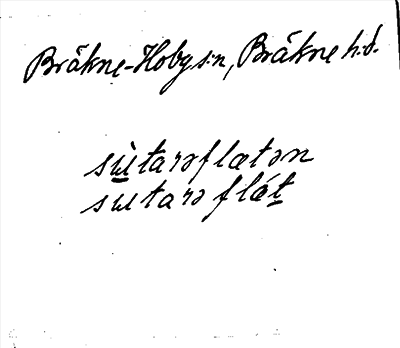 Bräkne-Hoby s:n, Bräkne h:d.
sɯ̀tarəflætən
sɯtarə flát